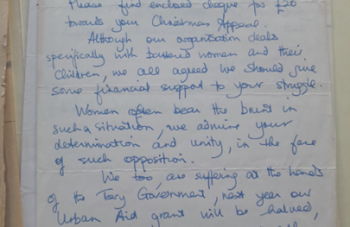 Please find enclosed cheque for £20
towards your Christmas Appeal.
Although our organisation deals
specifically with battered women and their
children, we all agreed we should give
some financial support to your struggle.
Women often bear the brunt in
such a situation, we admire your
determination and unity, in the face
of such opposition.
We too, are suffering at the hands
of the Tory Government, next year our
Urban Aid grant will be halved,